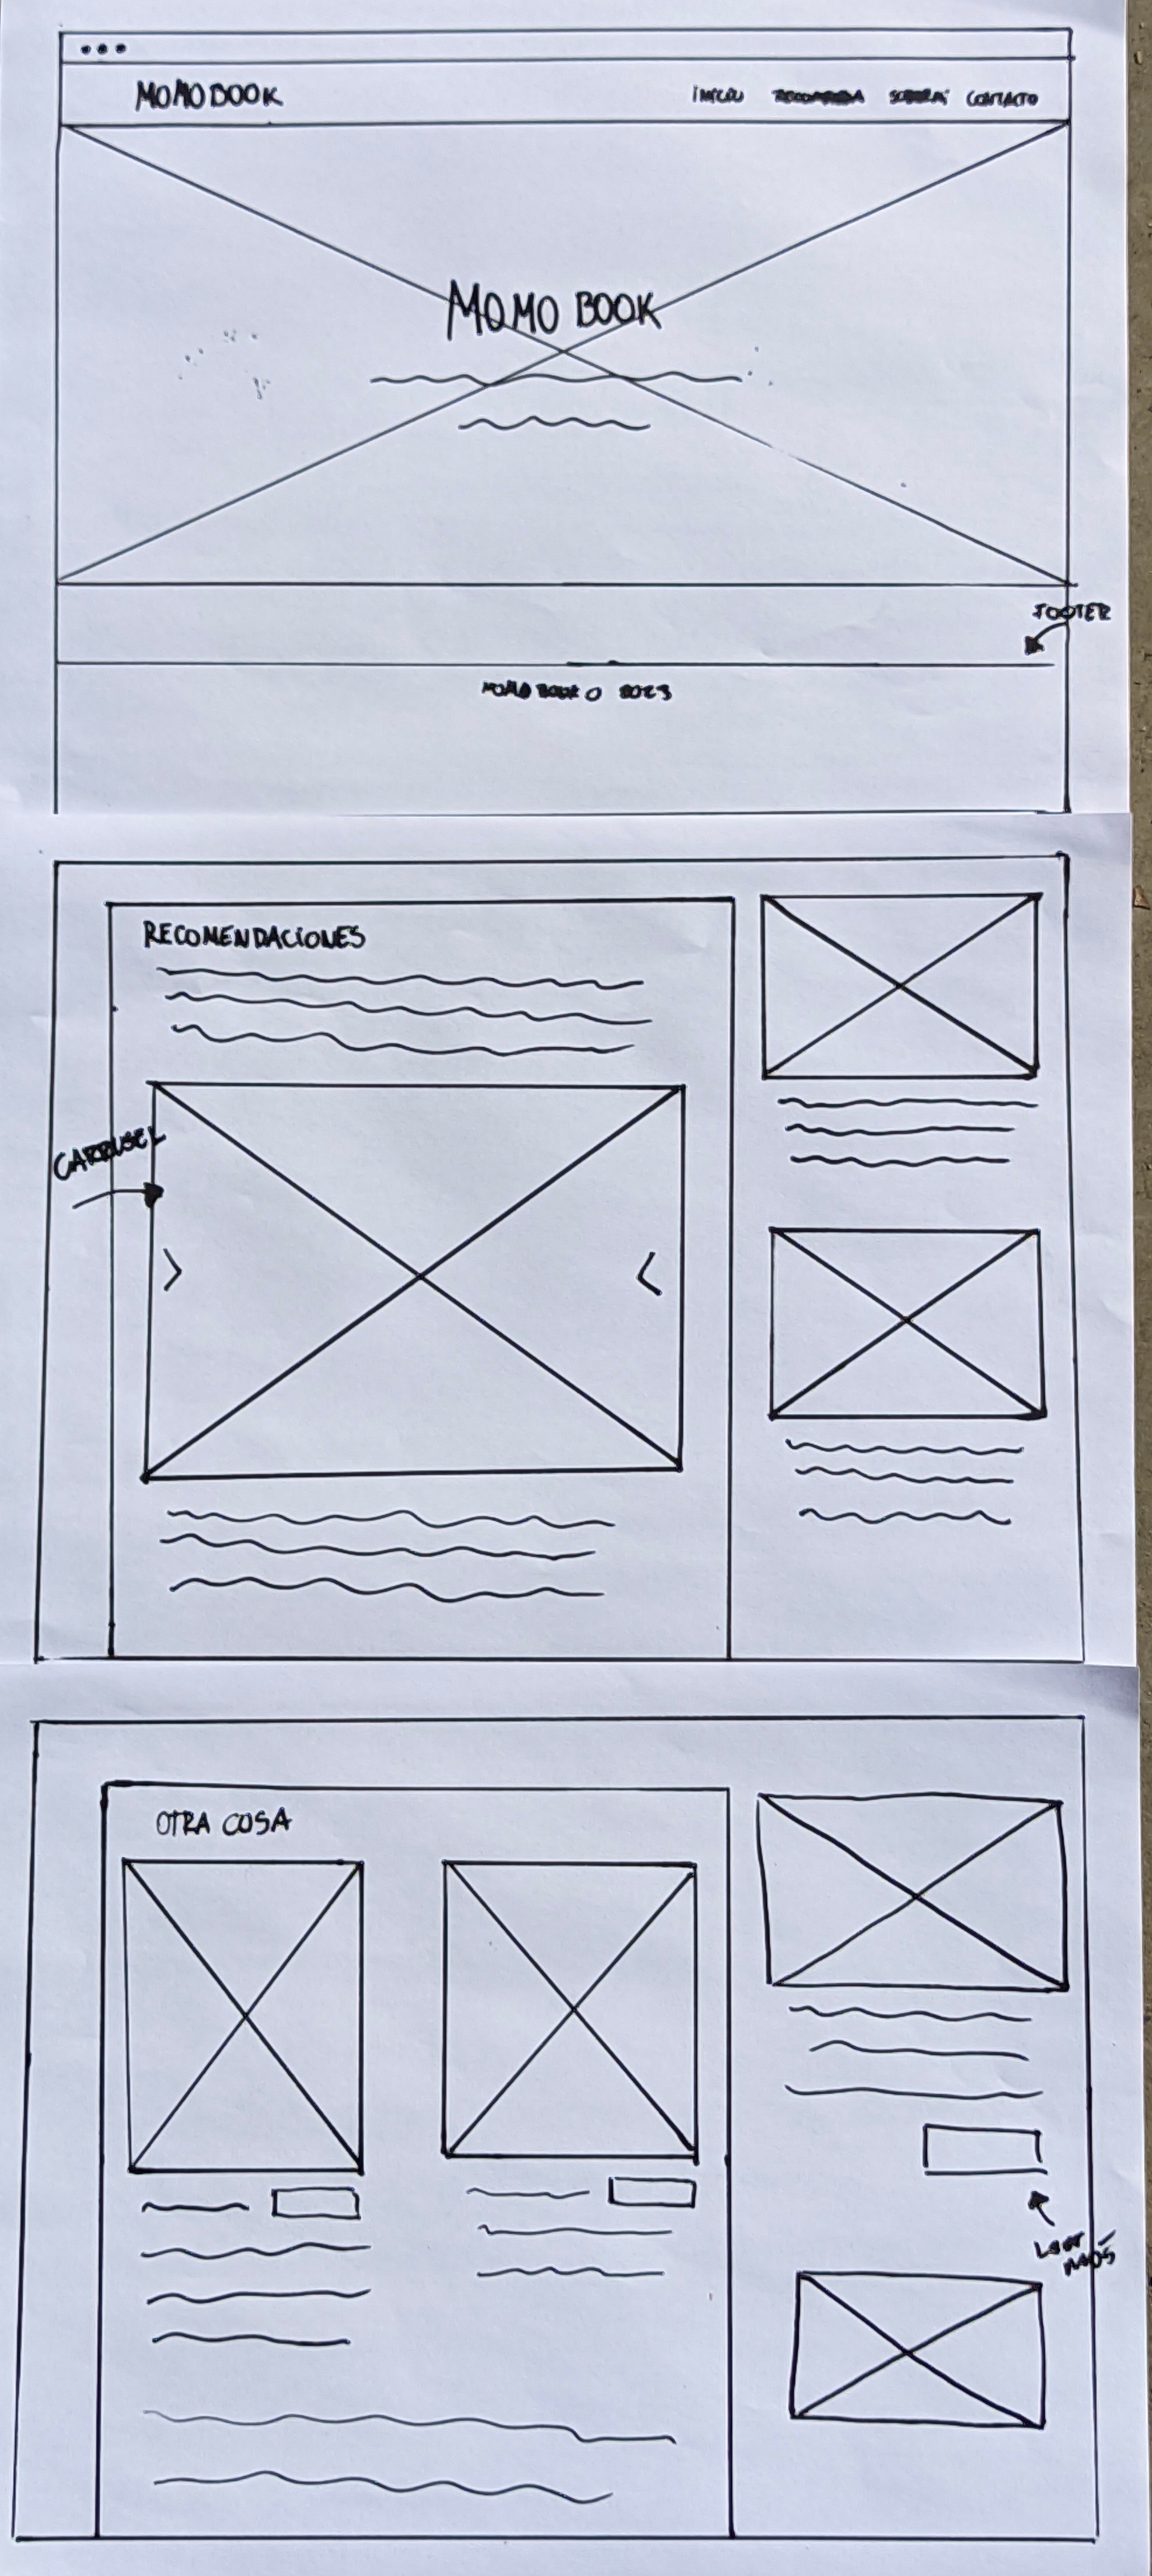 MOMOBOOK
INICIO CONTACTO
MOMO BOOK
FOOTER
MOMO BOOK © 2023
RECOMENDACIONES
CARRUSEL
OTRA COSA
LEER
MÁS